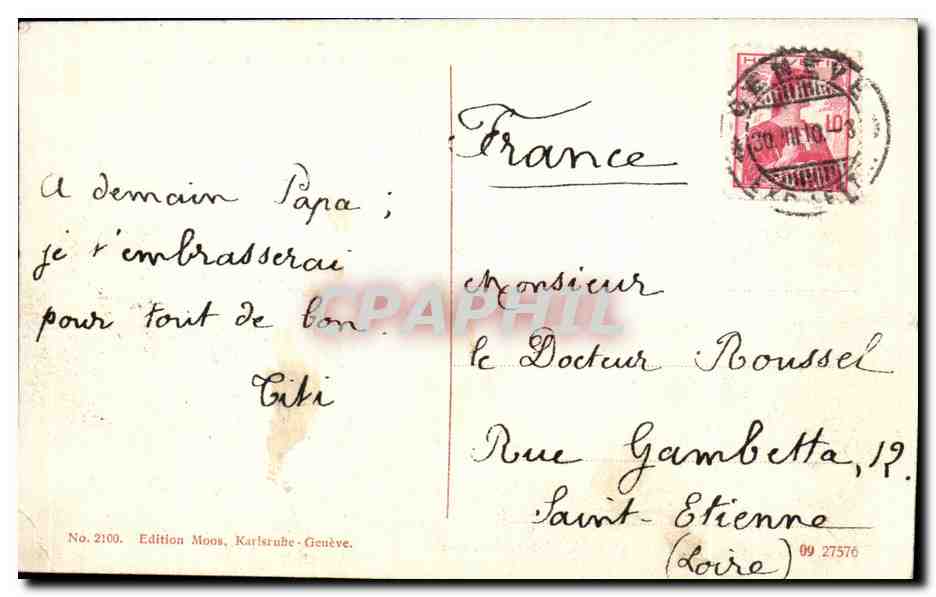 A demain Papa ;
je t'embrasserai
pour tout de bon.
Titi
No. 2100. Edition Moos, Karlsruhe - Genève.
HELVETIA
10
GENÈVE
France
Monsieur
le Docteur Roussel
Rue Gambetta, 12.
Saint-Etienne
(Loire)
09 27576
CPAPHIL